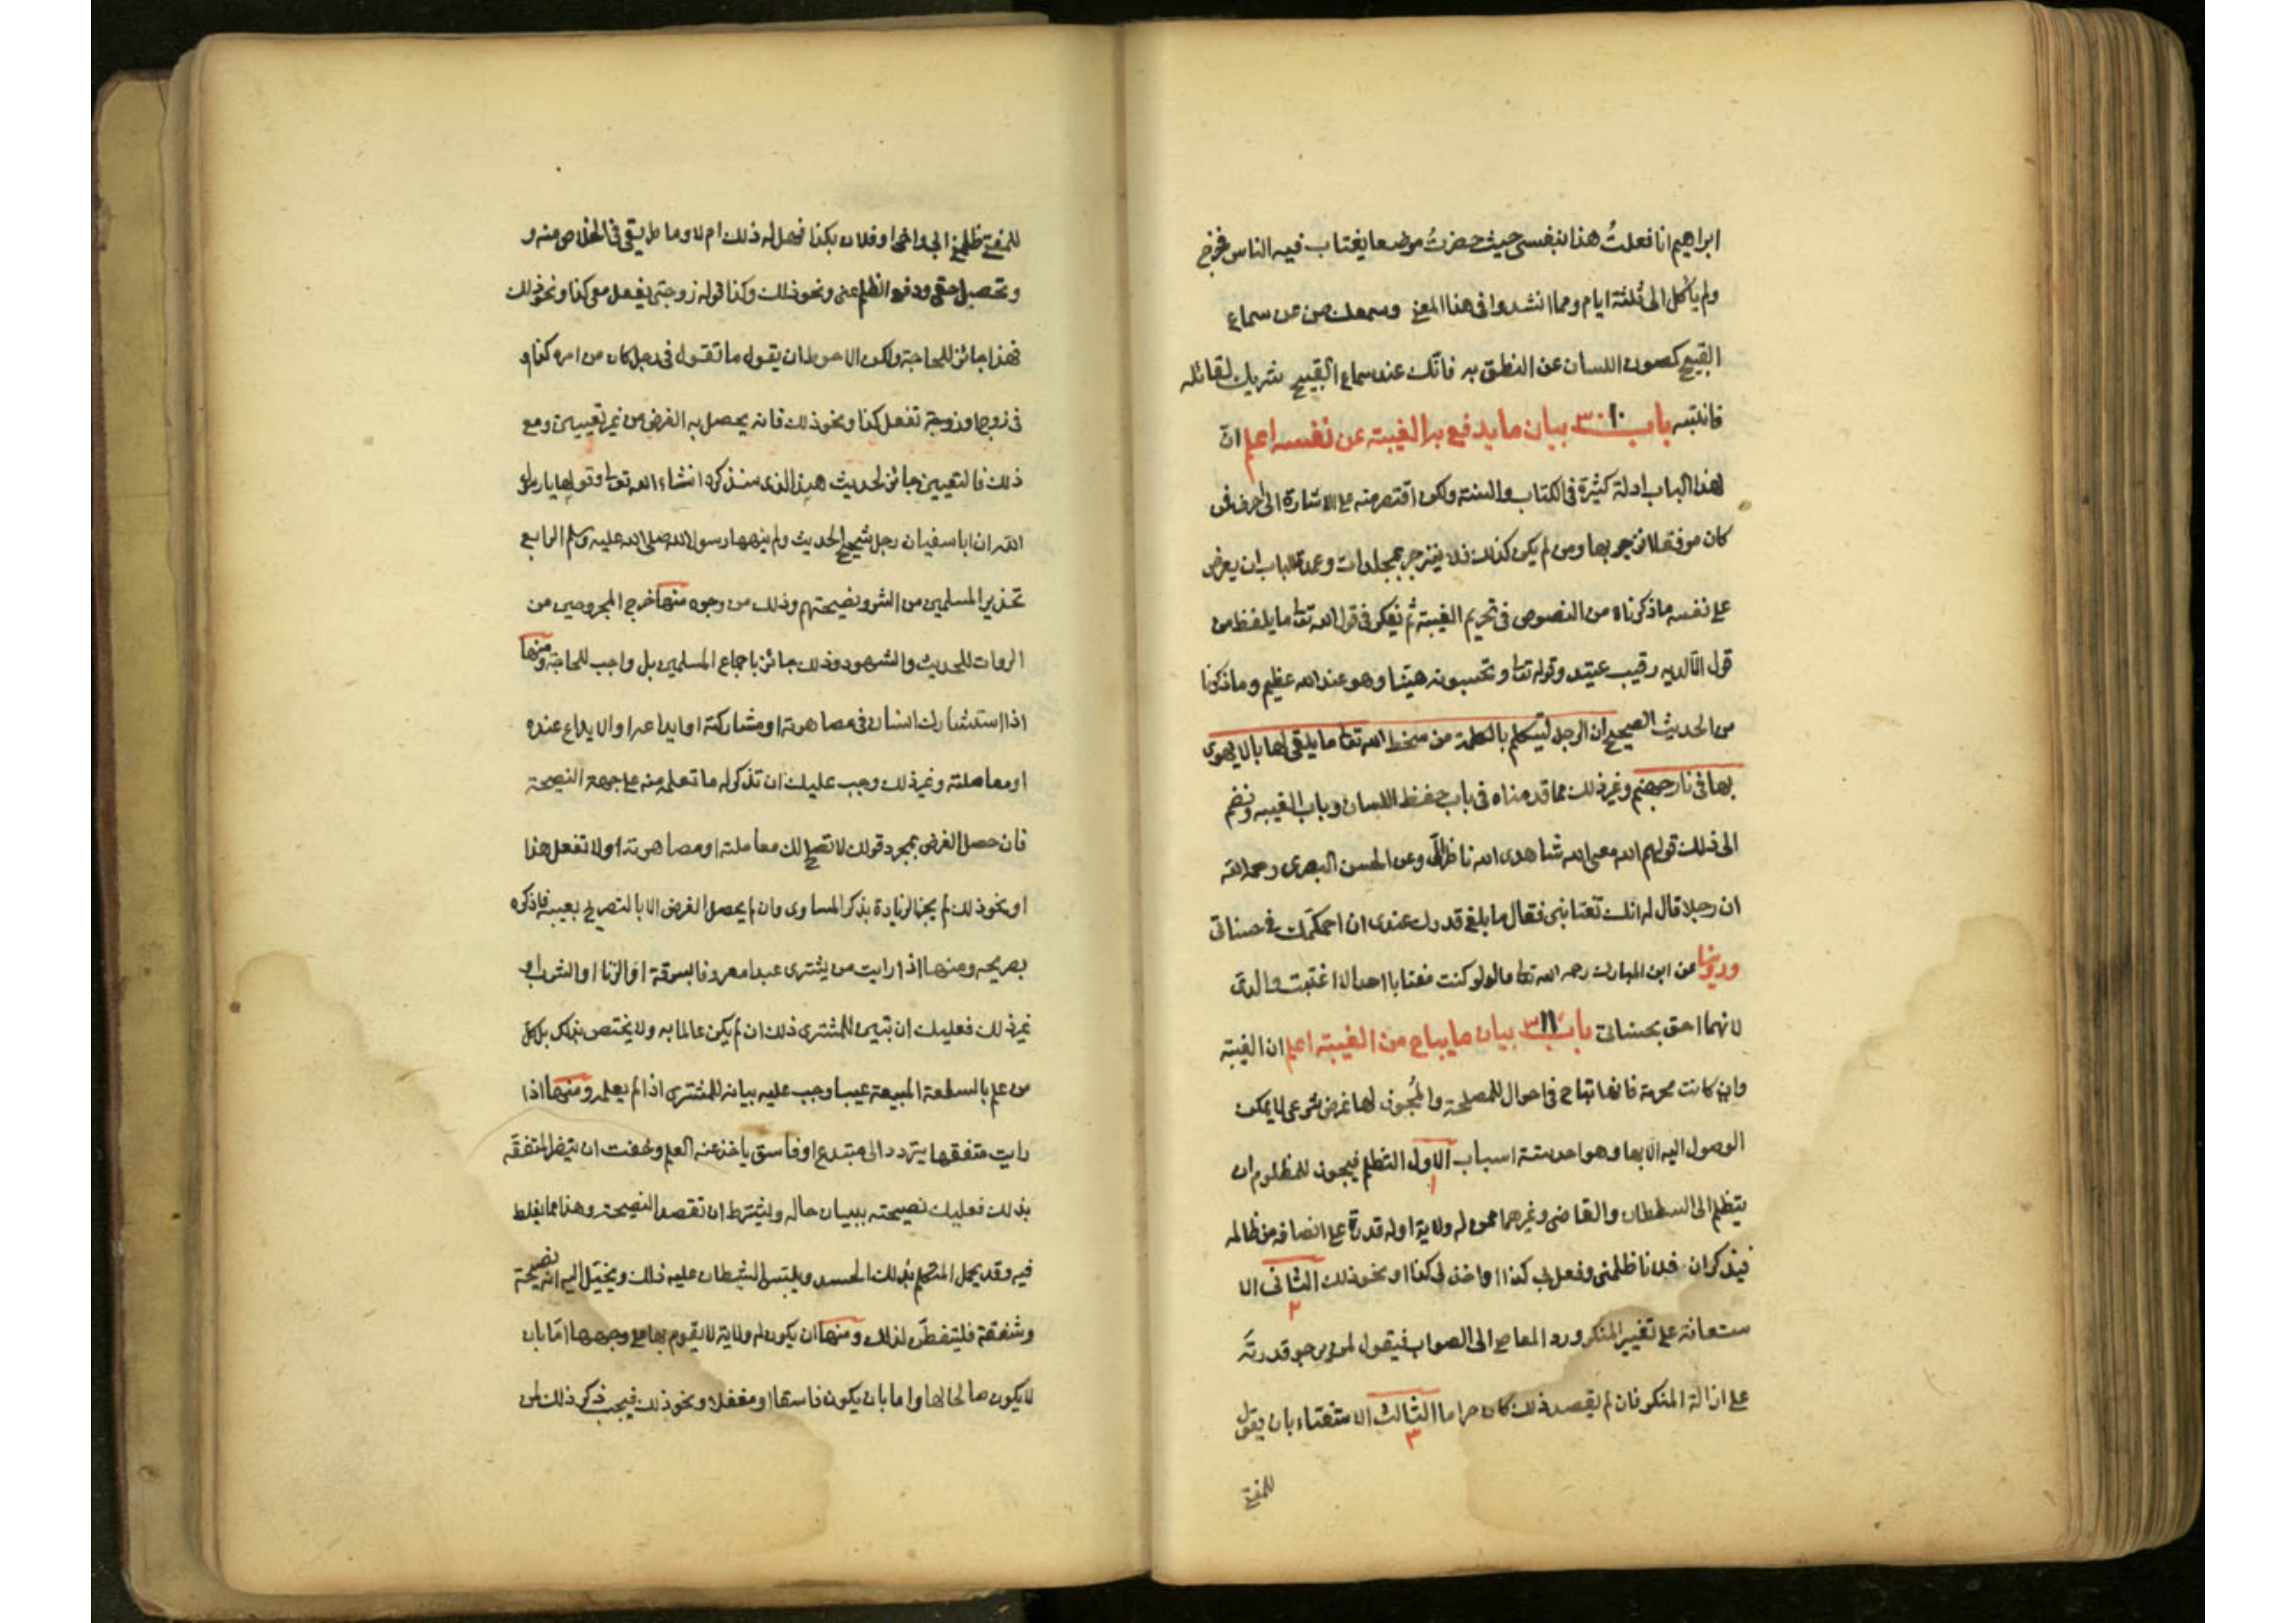 ابراهيم انا فعلتُ هذا بنفسي حيث حضرتُ موضعا يغتاب فيه الناس فخرج
ولم يأكل الى ثلثة ايام ومما انشدوا في هذا المعنى وسمعك صن عن سماع
القبيح كصون اللسان عن النطق به فانّك عند سماع القبيح شريك لقائله
فانتبه باب ٣٠١٠ بيان ما يدفع به الغيبة عن نفسه اعلم انّ
لهذا الباب ادلة كثيرة في الكتاب والسنة ولكن اقتصر منه على الاشارة الى احرف فمن
كان موفقا لانزجر بها ومن لم يكن كذلك فلا ينزجر بمجلدات وعمدة الباب ان يعرض
على نفسه ما ذكرناه من النصوص في تحريم الغيبة ثم يفكر في قول الله تعا ما يلفظ من
قول الّا لديه رقيب عتيد وقوله تعا وتحسبونه هيّنا وهو عند الله عظيم وما ذكرنا
من الحديث الصحيح ان الرجل ليتكلم بالكلمة من سخط الله تعا ما يلقى لها بالا يهوى
بها في نار جهنم وغير ذلك مما قدمناه في باب حفظ اللسان وباب الغيبه ونضم
الى ذلك قولهم الله معى الله شاهدى الله ناظر الّى وعن الحسن البصرى رحمه الله
ان رجلا قال له انك تغتابنى فقال ما بلغ قدرك عندى ان احكّمك في حسناتى
وروينا عن ابن المبارك رحمه الله تعا قال لو كنت مغتابا احدا لاغتبت والدىّ
لانهما احق بحسناتى باب ٣١١ بيان ما يباح من الغيبة اعلم ان الغيبة
وان كانت محرمة فانها تباح في احوال للمصلحة والمُجوز لها غرض شرعى لا يمكن
الوصول اليه الا بها وهو احد ستة اسباب الاول التظلم فيجوز للمظلوم ان
١
يتظلم الى السلطان والقاضى وغيرهما ممن له ولاية او له قدرة على انصافه من ظالمه
فيذكر ان فلانا ظلمنى وفعل بى كذا واخذ لى كذا ونحو ذلك الثانى الا
٢
ستعانة على تغيير المنكر ورد المعاصى الى الصواب فيقول لمن يرجو قدرته
على ازالة المنكر فان لم يقصد ذلك كان حراما الثالث الاستفتاء بان يقول
٣
للمفتى
للمفتى ظلمنى ابى واخى او فلان بكذا فهل له ذلك ام لا وما طريقى في الخلاص منه و
وتحصيل حقى ودفع الظلم عنى ونحو ذلك وكذا قوله زوجتى يفعل معى كذا ونحو ذلك
فهذا جائز للحاجة ولكن الاحوط ان يقول ما تقول في رجل كان من امره كذا و
في زوج او زوجة تفعل كذا ونحو ذلك فانه يحصل به الغرض من غير تعيين ومع
ذلك فالتعيين جائز لحديث هند الذى سنذكره انشاء الله تعا وقولها يا رسول
الله ان ابا سفيان رجل شحيح الحديث ولم ينهها رسول الله صلى الله عليه وسلم الرابع
تحذير المسلمين من الشر ونصيحتهم وذلك من وجوه منها جرح المجروحين من
الروات للحديث والشهود وذلك جائز باجماع المسلمين بل واجب للحاجة ومنها
اذا استشارك انسان في مصاهرته او مشاركته او ايداعه او الايداع عنده
او معاملته وغير ذلك وجب عليك ان تذكر له ما تعلمه منه على جهة النصيحة
فان حصل الغرض بمجرد قولك لا تصلح لك معاملته او مصاهرته او لا تفعل هذا
او نحو ذلك لم يجز الزيادة بذكر المساوى وان لم يحصل الغرض الا بالتصريح بعيبه فاذكره
بصريحه ومنها اذا رايت من يشترى عبدا معروفا بسرقة او الزنا او الشرب او
غير ذلك فعليك ان تبين للمشترى ذلك ان لم يكن عالما به ولا يختص بذلك بل كل
من علم بالسلعة المبيعة عيبا وجب عليه بيانه للمشترى اذا لم يعلمه ومنها اذا
رايت متفقها يتردد الى مبتدع او فاسق يأخذ عنه العلم وخفت ان يتضر المتفقّه
بذلك فعليك نصيحته ببيان حاله ويشترط ان تقصد النصيحة وهذا مما يغلط
فيه وقد يحمل المتكلم بذلك الحسد ويلبس الشيطان عليه ذلك ويخيّل اليه انه نصيحة
وشفقة فليتفطّن لذلك ومنها ان يكون له ولاية لا يقوم بها على وجهها امّا بان
لا يكون صالحا لها واما بان يكون فاسقا او مغفلا ونحو ذلك فيجب ذكر ذلك لمن